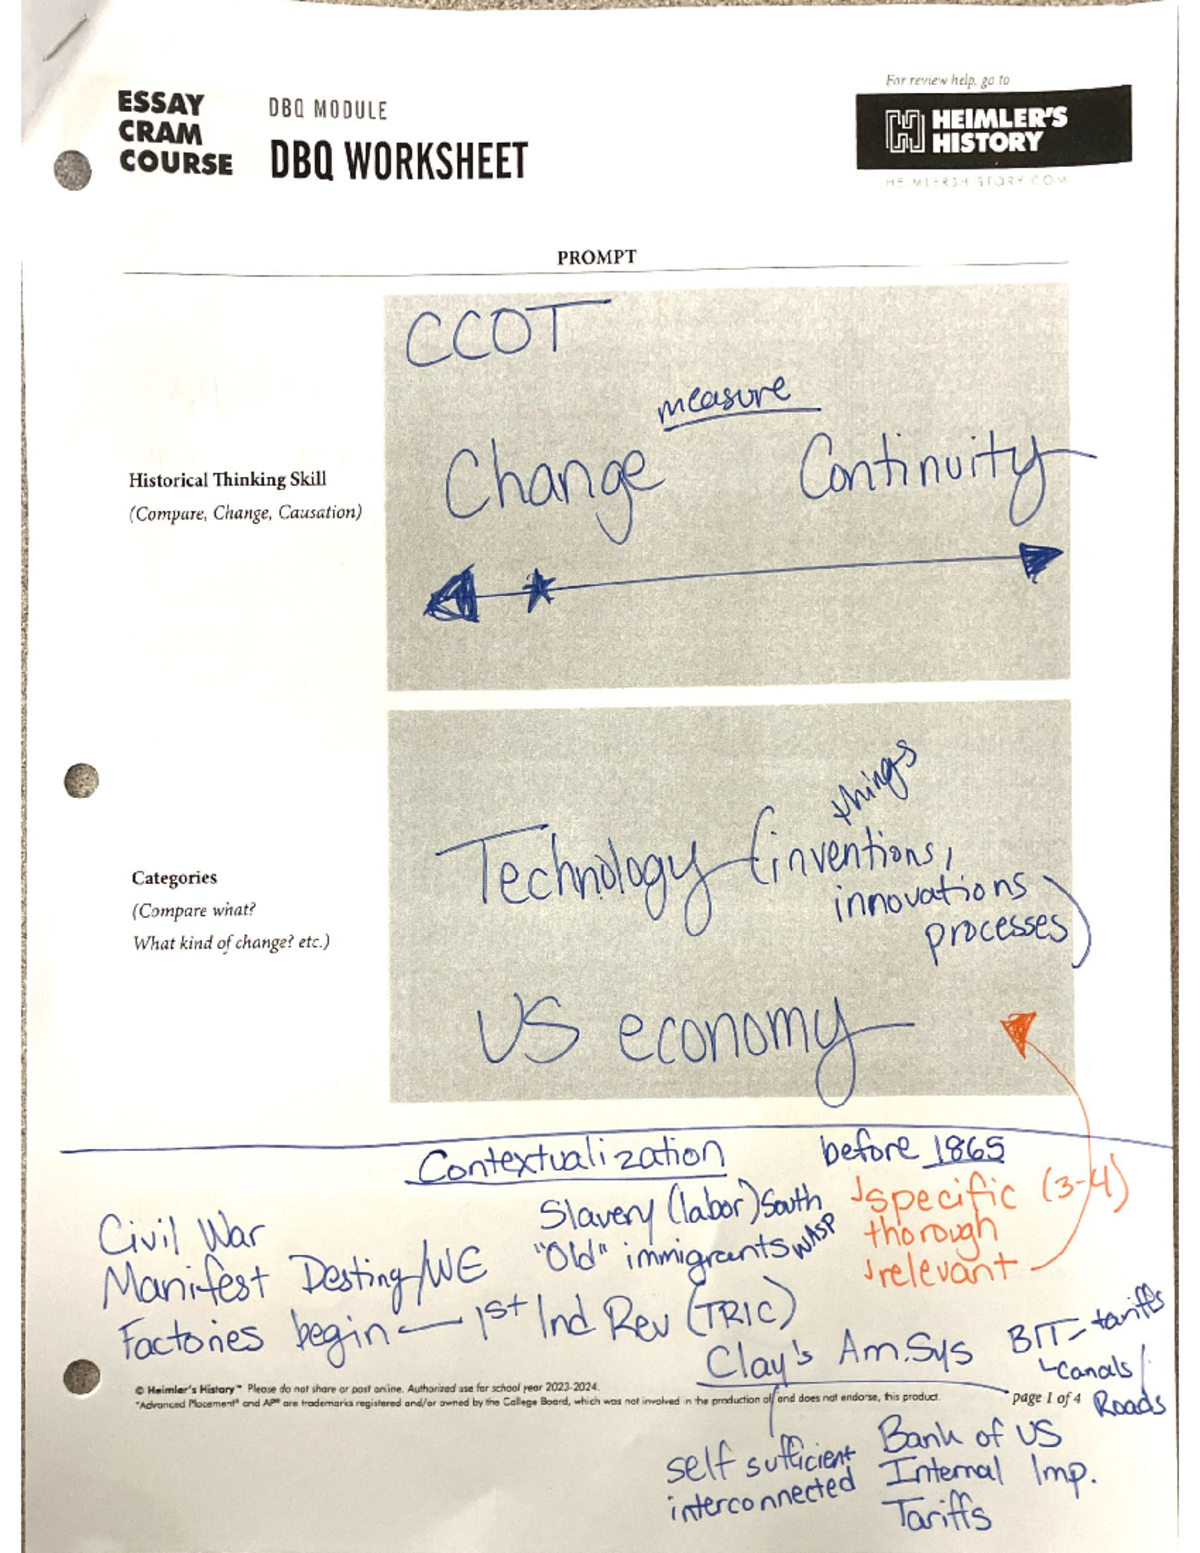 For review help, go to
ESSAY
CRAM
COURSE
DBQ MODULE
DBQ WORKSHEET
HEIMLER'S
HISTORY
HEIMLERSHISTORY.COM
PROMPT
CCOT
measure
Change Continuity
Historical Thinking Skill
(Compare, Change, Causation)
things
Technology (inventions,
innovations
processes)
Categories
(Compare what?
What kind of change? etc.)
US economy
Contextualization before 1865
Slavery (labor) South
specific (3-4)
Civil War
"Old" immigrants WASP
thorough
Manifest Destiny/WE
relevant
Factories begin 1st Ind Rev (TRIC)
Clay's Am. Sys
BIT - tariffs
Canals/
Roads
© Heimler's History™ Please do not share or post online. Authorized use for school year 2023-2024.
*Advanced Placement® and AP® are trademarks registered and/or owned by the College Board, which was not involved in the production of, and does not endorse, this product.
page 1 of 4
self sufficient
interconnected
Bank of US
Internal Imp.
Tariffs